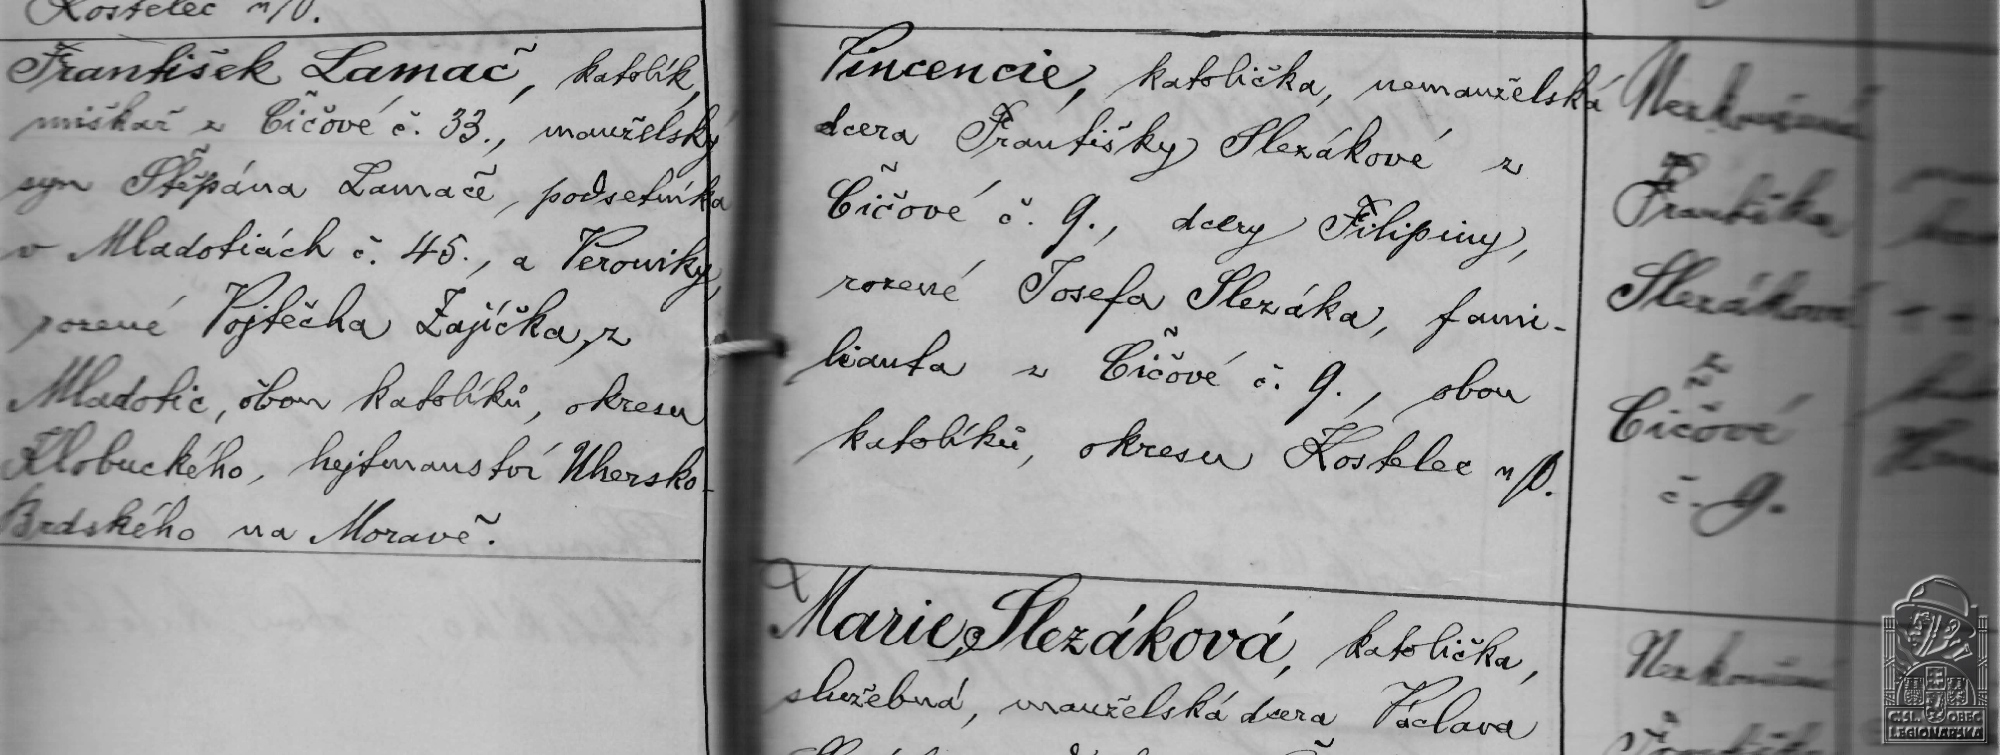 Kostelec n/O.
František Lamač, katolík,
miškař z Čičové č. 33., manželský
syn Štěpána Lamače, podsedníka
v Mladoticách č. 45., a Veroniky,
rozené Vojtěcha Zajíčka, z
Mladotic, obou katolíků, okresu
Klobuckého, hejtmanství Uhersko-
Brdského na Moravě.
Vincencie, katolička, nemanželská
dcera Františky Slezákové z
Čičové č. 9., dcery Filipiny,
rozené Josefa Slezáka, fami-
lianta z Čičové č. 9., obou
katolíků, okresu Kostelec n/O.
Marie Slezáková, katolička,
služebná, manželská dcera Václava
Nezkoušená
Františka
Slezáková
z
Čičové
č. 9.
Nezkoušená
ČSL. OBEC
LEGIONÁŘSKÁ